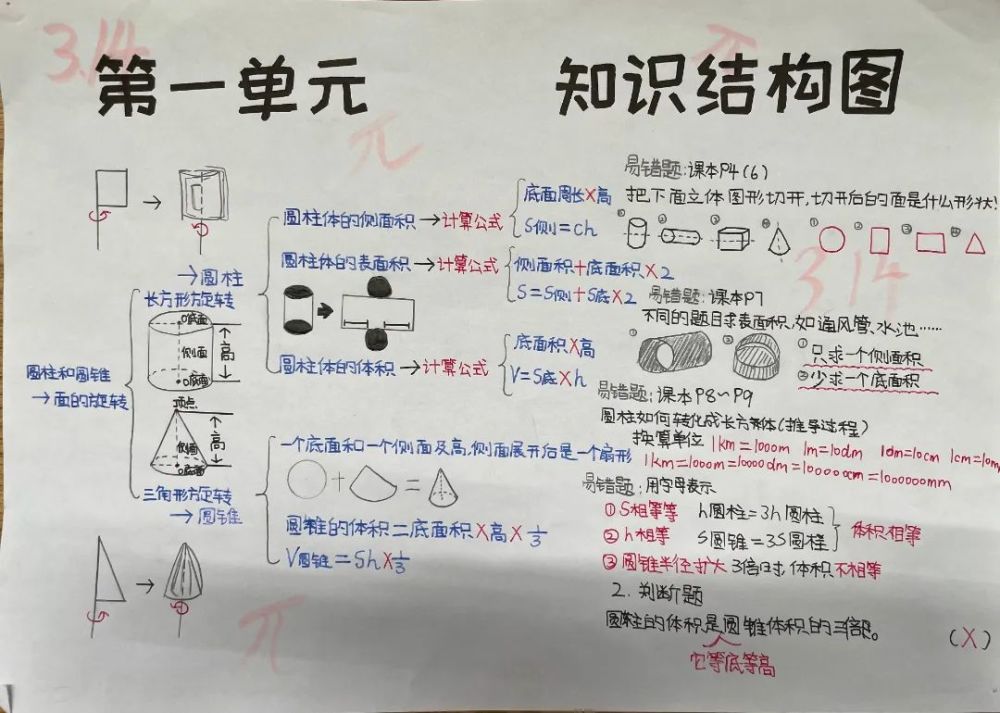 3.14
π
第一单元 知识结构图
π
圆柱和圆锥
→面的旋转
→圆柱
长方形旋转
O底面
侧面
高
O底面
顶点
侧面
高
O底面
三角形旋转
→圆锥
圆柱体的侧面积→计算公式
底面周长×高
S侧=ch
圆柱体的表面积→计算公式
侧面积+底面积×2
S=S侧+S底×2
圆柱体的体积→计算公式
底面积×高
V=S底×h
一个底面和一个侧面及高,侧面展开后是一个扇形
圆锥的体积=底面积×高×1/3
V圆锥=Sh×1/3
π
易错题:课本P4(6)
把下面立体图形切开,切开后的面是什么形状!
① ② ③ ④ ① ② ③ ④
3.14
易错题:课本P7
不同的题目求表面积,如通风管、水池……
① ②
①只求一个侧面积
②少求一个底面积
易错题:课本P8~P9
圆柱如何转化成长方体(推导过程)
换算单位 1km=1000m 1m=10dm 1dm=10cm 1cm=10m
1km=1000m=10000dm=100000cm=1000000mm
易错题:用字母表示
①S相等 h圆柱=3h圆柱
②h相等 S圆锥=3S圆柱
体积相等
③圆锥半径扩大3倍时,体积不相等
2.判断题
圆柱的体积是圆锥体积的三倍。 (×)
它等底等高